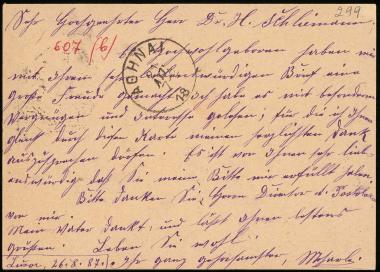 299
Sehr Hochgeehrter Herr Dr. H. Schliemann.
607 (6)
Hochwohlgeboren haben
mir Ihren sehr Brief eine
große Freude gemacht. Ich habe es mit besonderem
Vergnügen und Interesse gelesen; für die ich Ihnen
Glück durch diese Karte meinen herzlichsten Dank
auszusprechen dürfen. Es ist von Ihnen sehr lieb-
enswürdig daß Sie meine Bitte mir erfüllt haben.
Bitte danken Sie Herrn Director d.
von mir.
Mein Vater dankt und läßt Ihnen bestens
grüßen. Leben Sie wohl
26.8.87. Ihr ganz gehorsamster,
ΑΘΗΝΑΙ